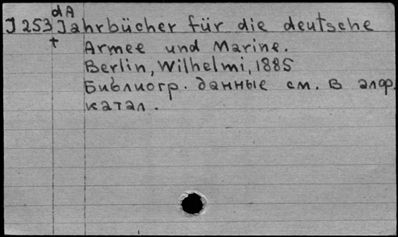 dA
J 253 Jahrbücher für die deutsche
t Armee und Marine.
Berlin, Wilhelmi, 1885
Библиогр. данные см. в алф.
катал.